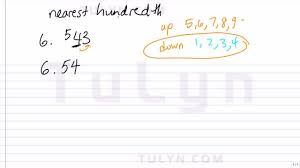 nearest hundredth
up 5,6,7,8,9
6.543
down 1,2,3,4
6.54
TuLyn
TULYN.COM